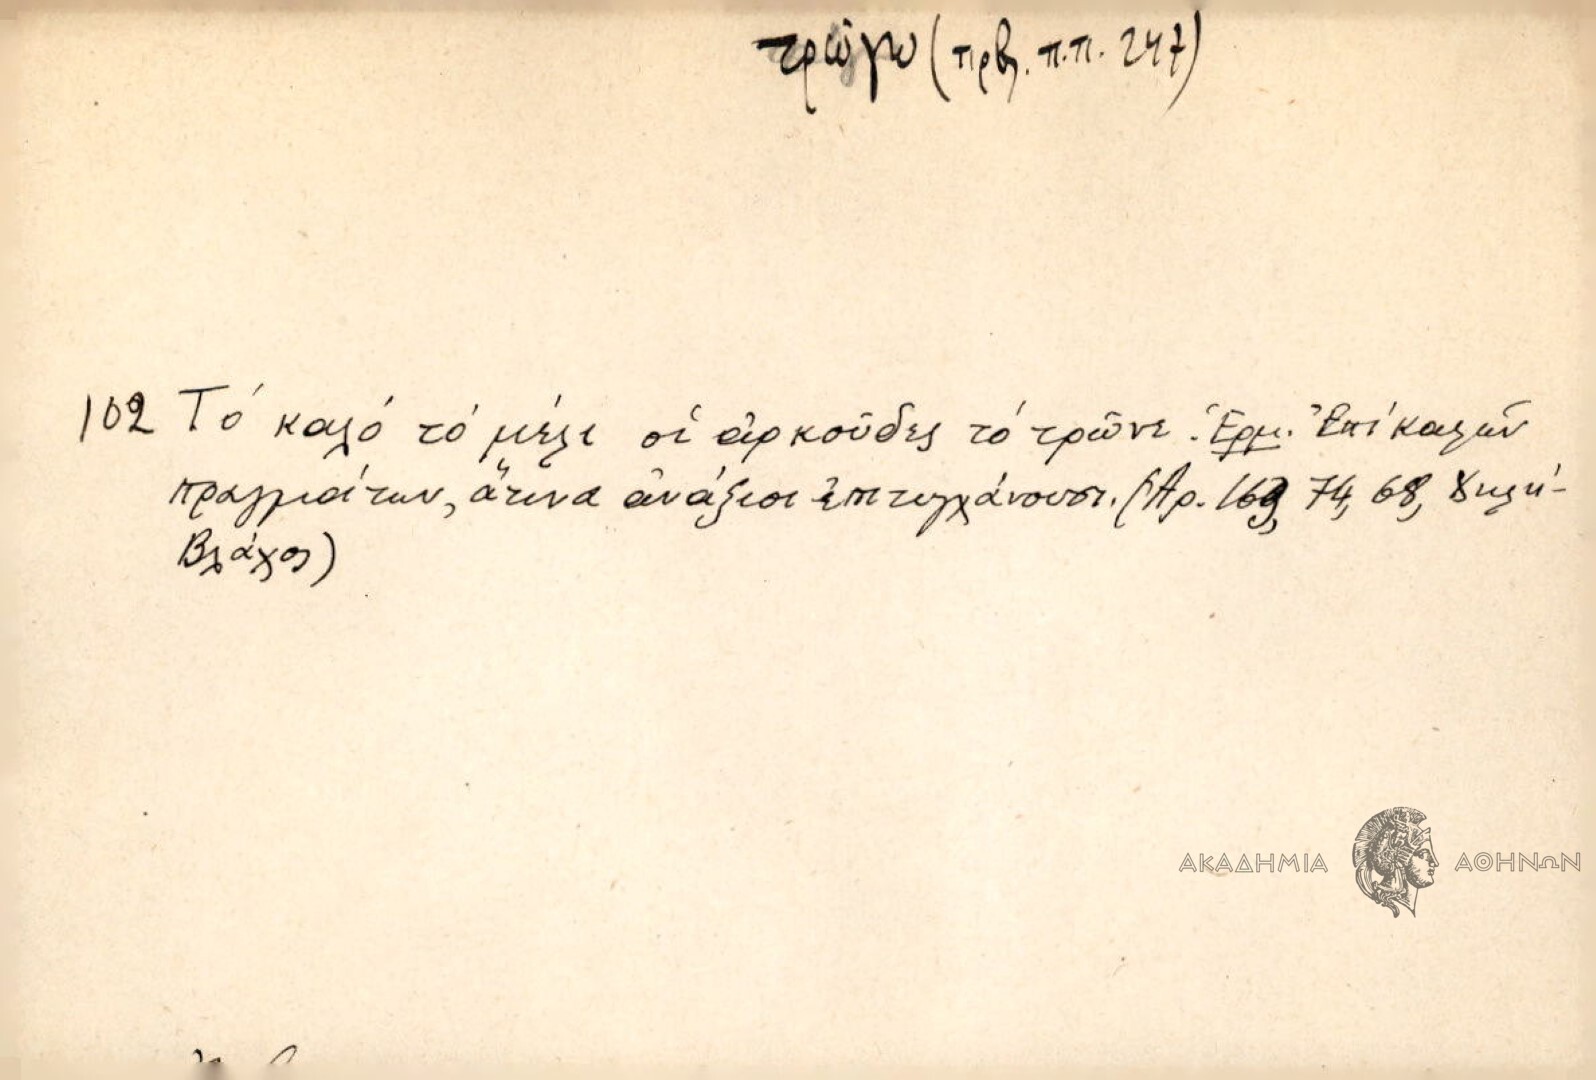 τρώγω (πρβ. π.π. 247)
102 Τό καλό τό μέλι οἱ ἀρκοῦδες τό τρῶνε. Ἑρμ. Ἐπί καλῶν
πραγμάτων, ἅτινα ἀνάξιοι ἐπιτυγχάνουσι. (Ἀρ. 169, 74, 68,
Βλάχος)
ΑΚΑΔΗΜΙΑ ΑΘΗΝΩΝ